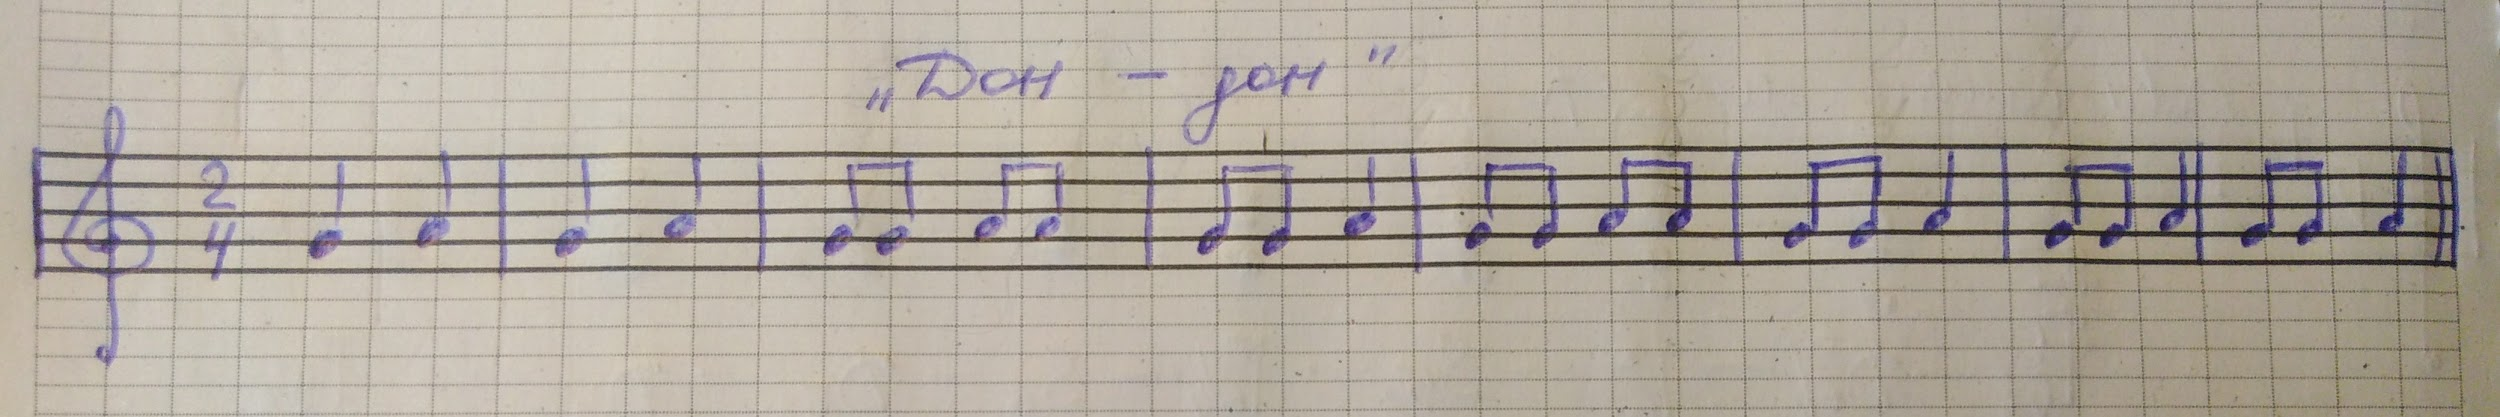 „Дон – дон"
2
4